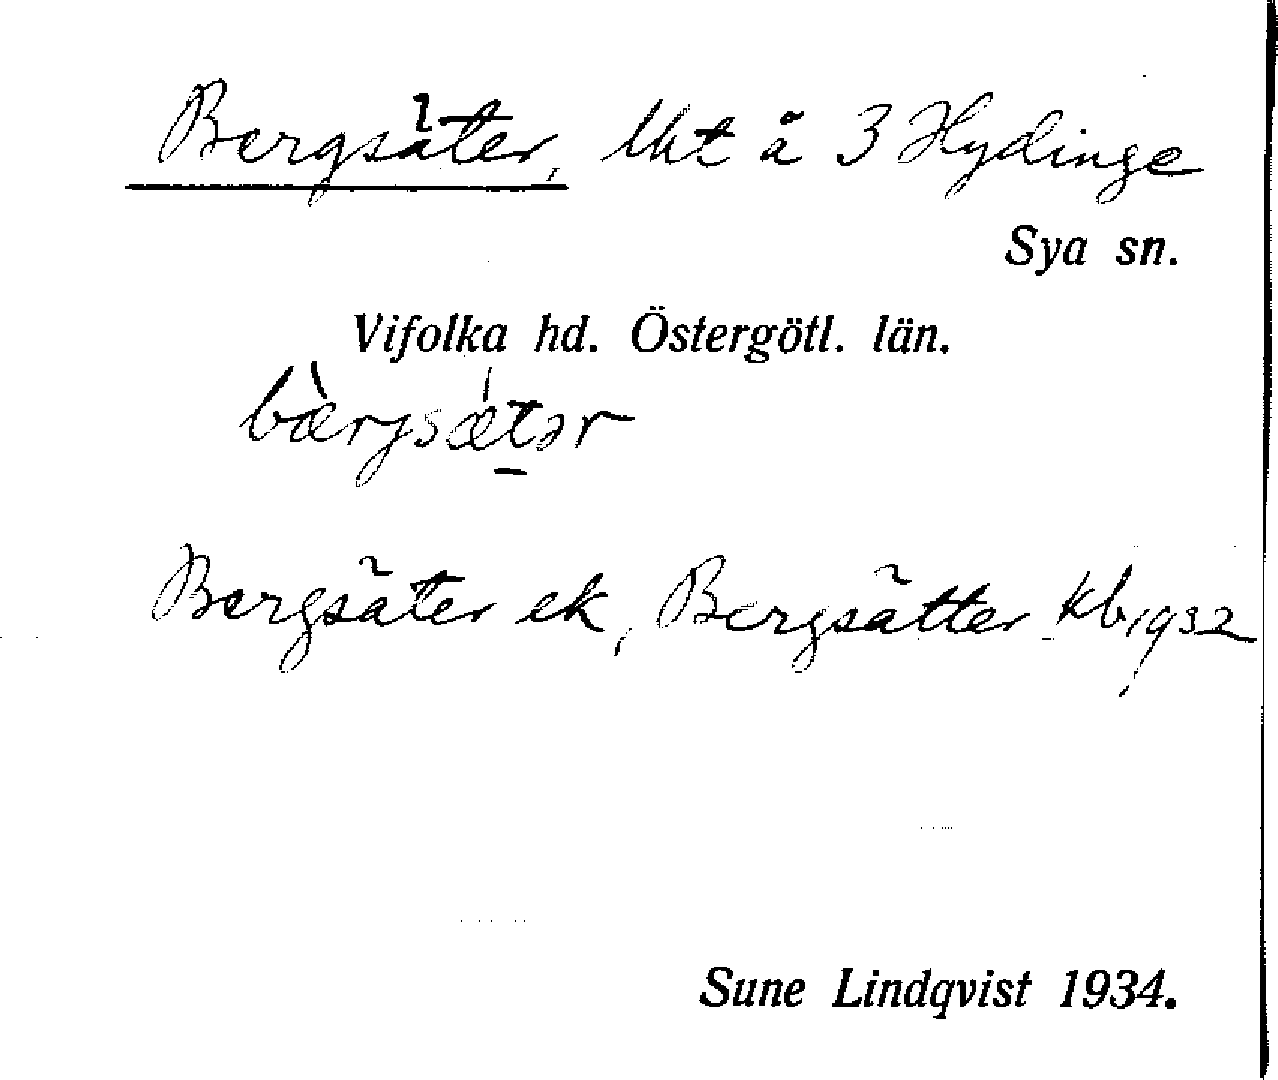 Bergsäter, lht å 3 Hydinge
Sya sn.
Vifolka hd. Östergötl. län.
bæ̀rjsætər
Bergsäter ek, Bergsätter kb 1932
Sune Lindqvist 1934.